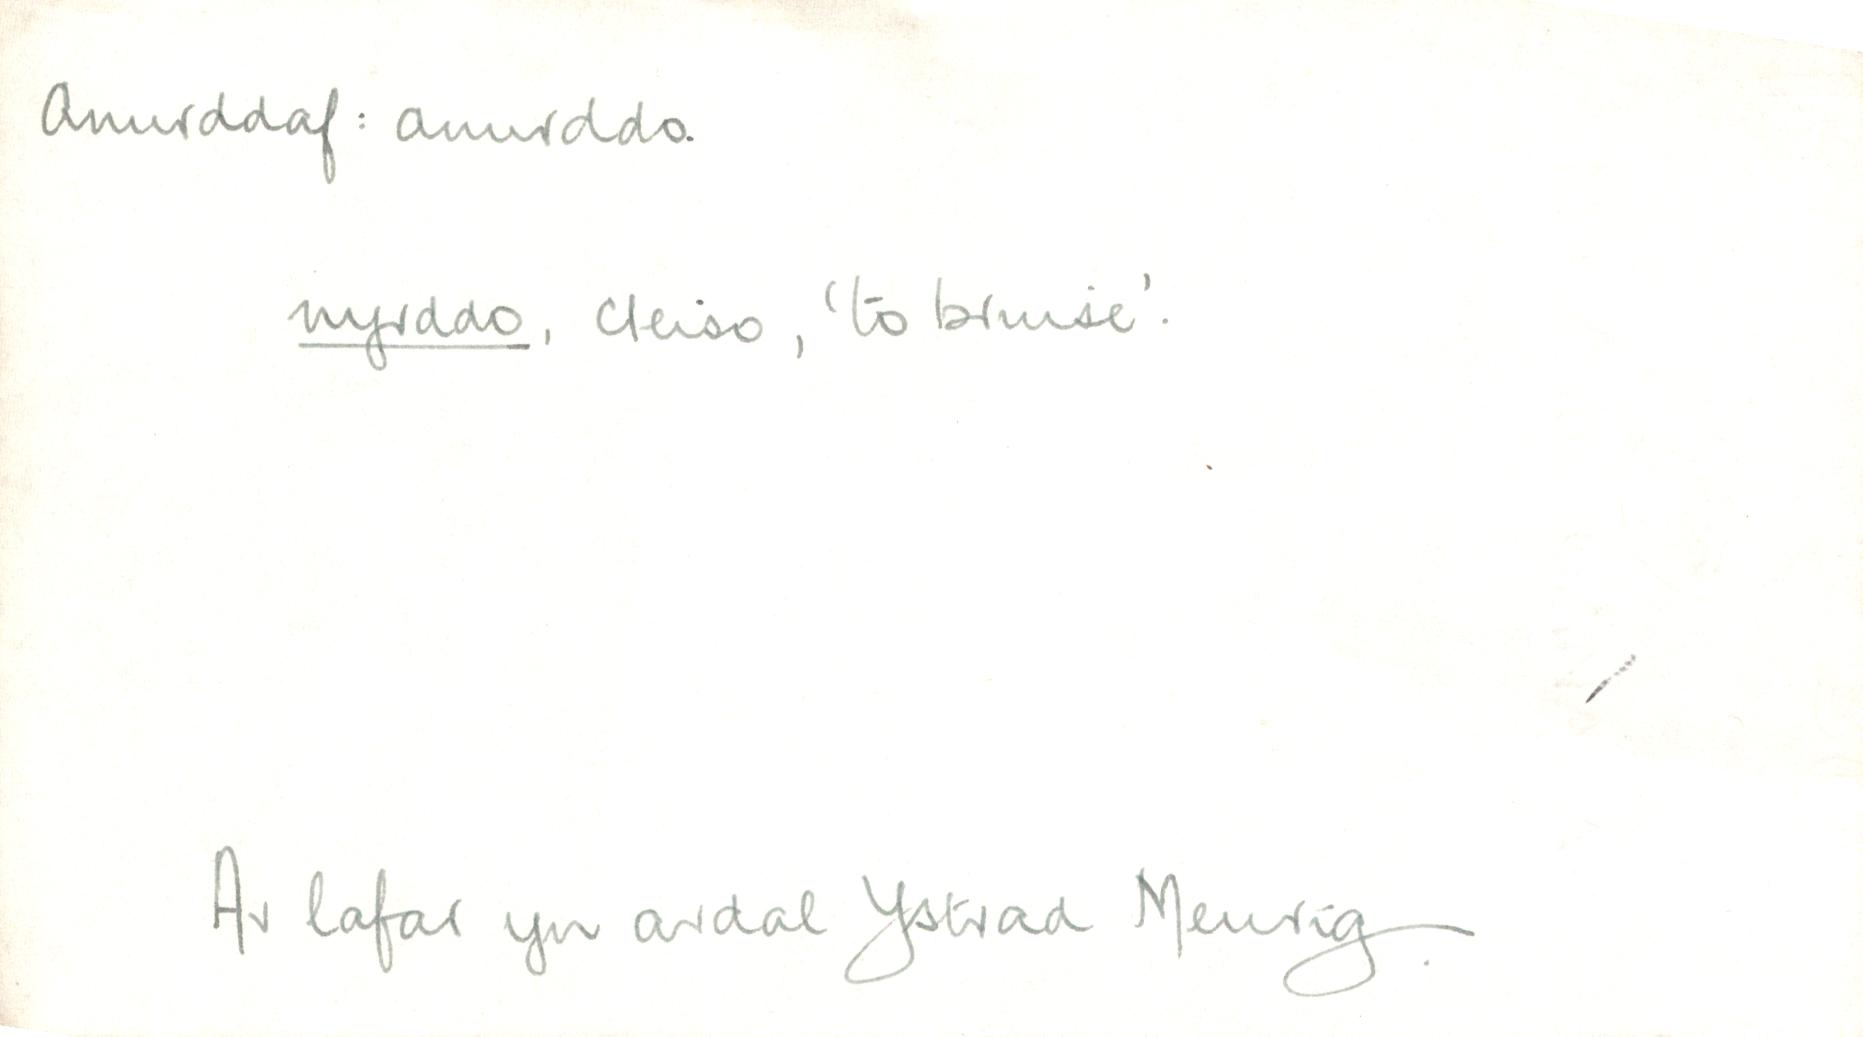 Anurddaf: anurddo.
nyrddo, cleisio, 'to bruise'.
Ar lafar yn ardal Ystrad Meurig.